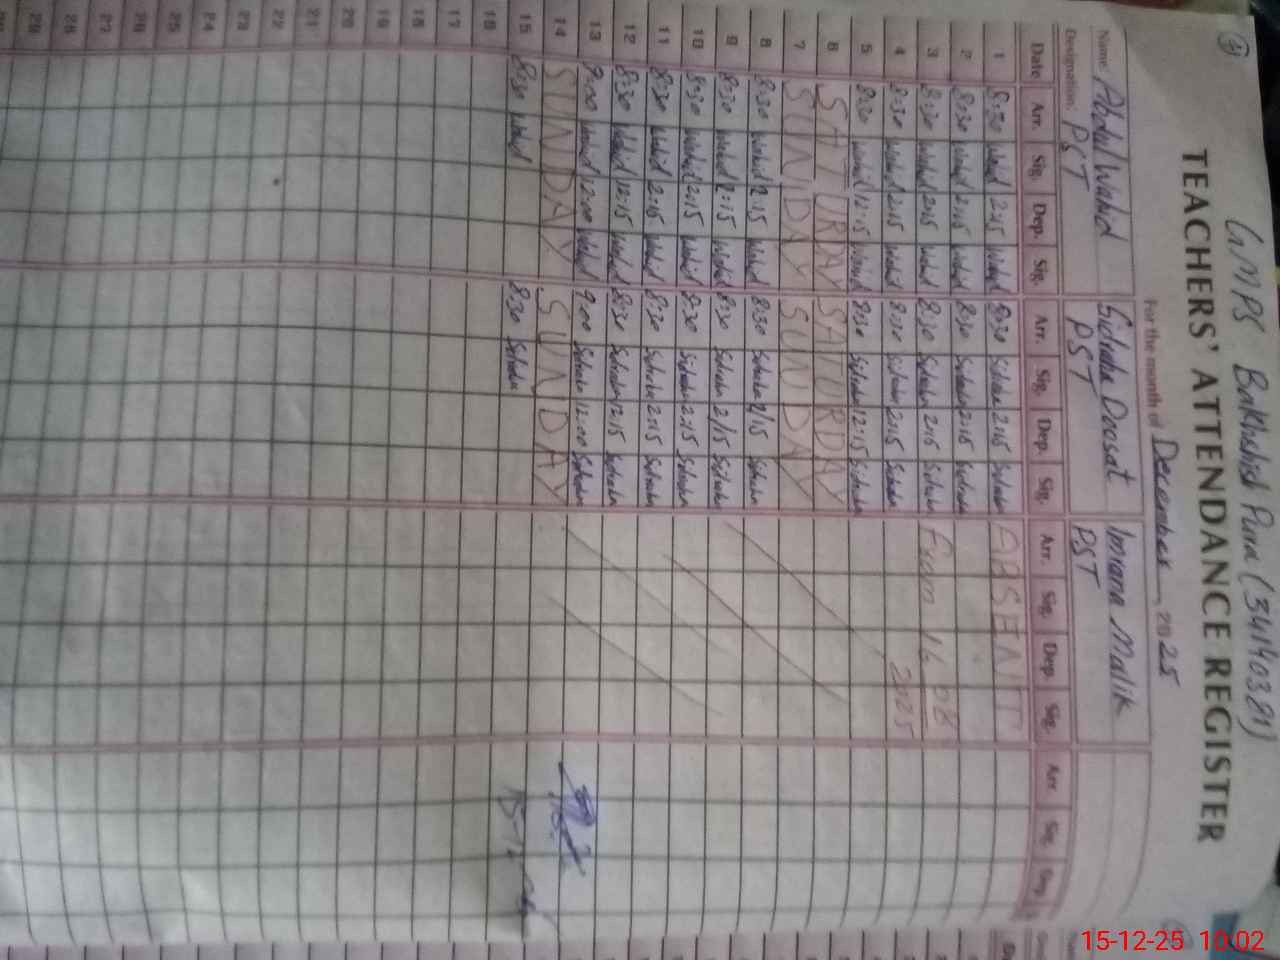 GMPS Bakhshish Pura (34140381)
TEACHERS' ATTENDANCE REGISTER
For the month of December, 2025
Name: Abdul Wahid Sidraha Doosat Imrana Malik
Designation: PST PST PST
Date Arr. Sig. Dep. Sig. Arr. Sig. Dep. Sig. Arr. Sig. Dep. Sig. Arr. Sig. Dep.
1 8:30 Wahid 2:15 Wahid 8:30 Sidraha 2:15 Sidraha ABSENT
2 8:30 Wahid 2:15 Wahid 8:30 Sidraha 2:15 Sidraha
3 8:30 Wahid 2:15 Wahid 8:30 Sidraha 2:15 Sidraha From 16 08
4 8:30 Wahid 2:15 Wahid 8:30 Sidraha 2:15 Sidraha 2025
5 8:30 Wahid 12:15 Wahid 8:30 Sidraha 12:15 Sidraha
6 SATURDAY SATURDAY
7 SUNDAY SUNDAY
8 8:30 Wahid 2:15 Wahid 8:30 Sidraha 2/15 Sidraha
9 8:30 Wahid 2:15 Wahid 8:30 Sidraha 2/15 Sidraha
10 8:30 Wahid 2:15 Wahid 8:30 Sidraha 2:15 Sidraha
11 8:30 Wahid 2:15 Wahid 8:30 Sidraha 2:15 Sidraha
12 8:30 Wahid 12:15 Wahid 8:30 Sidraha 12:15 Sidraha
13 9:00 Wahid 12:00 Wahid 9:00 Sidraha 12:00 Sidraha
14 SUNDAY SUNDAY
15 8:30 Wahid 8:30 Sidraha 15-12
16
17
18
19
20
21
22
23
24
25
26
27
28
29
15-12-25 10:02